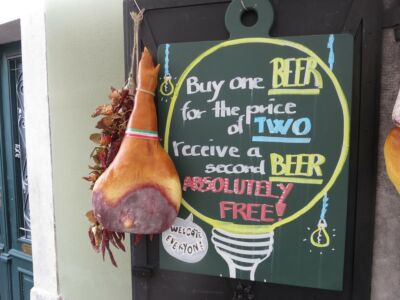 Buy one BEER
for the price
of TWO
receive a
second BEER
ABSOLUTELY
FREE!
WELCOME
EVERYONE!